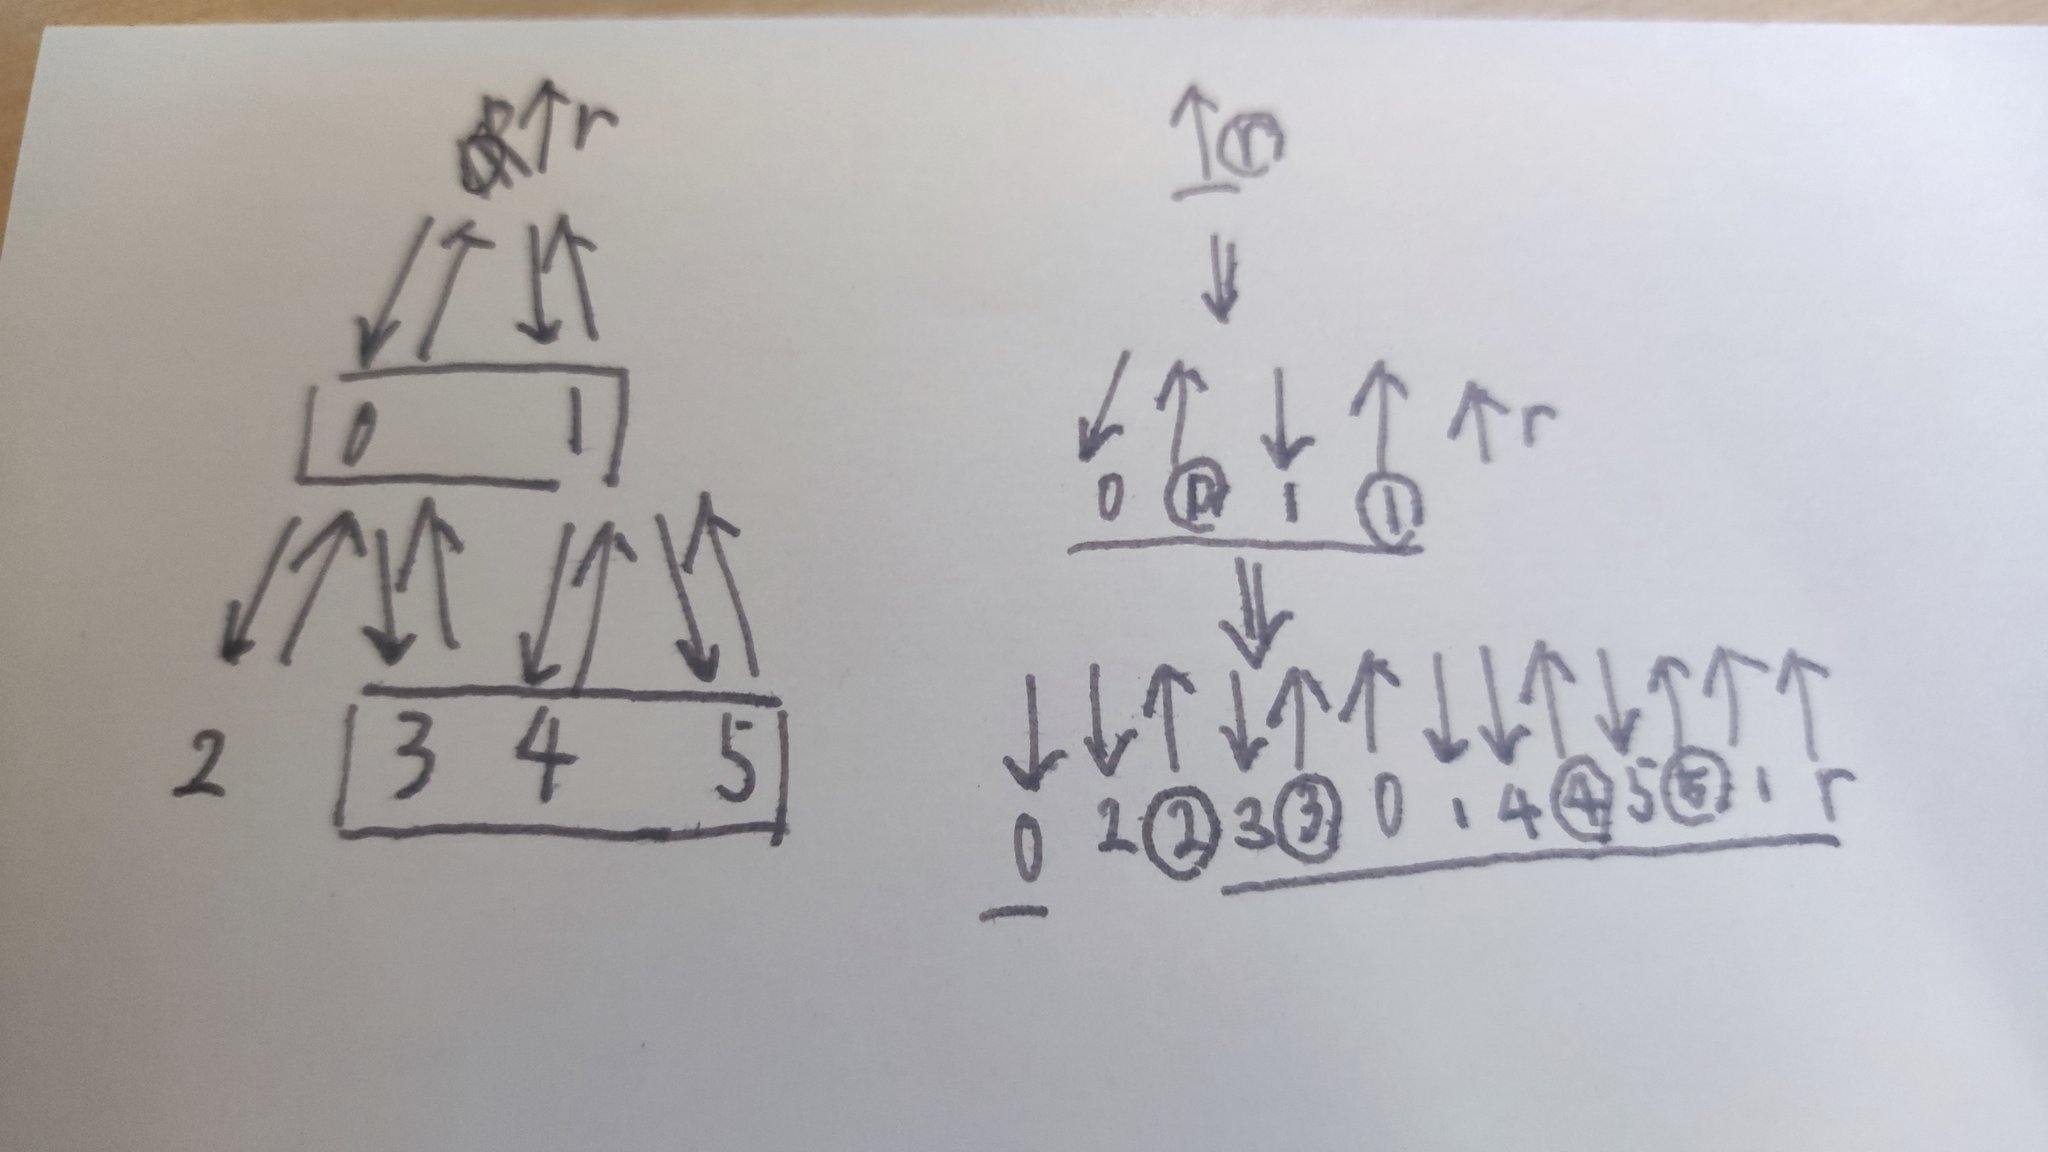 ↑r
0 1
2 3 4 5
↑ⓡ
⇓
↓ ↑ ↓ ↑ ↑r
0 ⓪ 1 ①
⇓
↓ ↓ ↑ ↓ ↑ ↑ ↓ ↓ ↑ ↓ ↑ ↑ ↑
0 2 ② 3 ③ 0 1 4 ④ 5 ⑤ 1 r